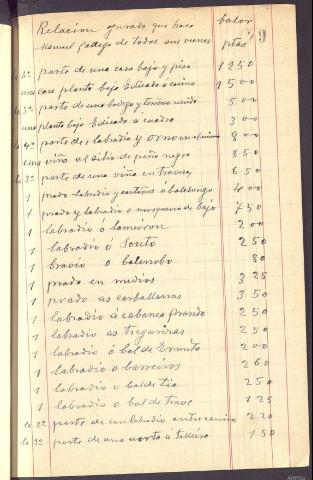 Relacion jurada que hace valor
Manuel Gallego de todos sus vienes ptas 9
la 4ª parte de una casa bajo y piso 1250
una casa planta bajo Edicado ó camino 1500
la 3ª parte de una bodega y terreno unido 500
una planta bajo Edicado a cuadra 300
la 4ª parte de labradio y orno en el mismo 800
una viña al sitio de piño negro 850
la 3ª parte de una viña en travesa 650
1 prado labradio y castaños ó balelongo 400
1 prado y labradio o mosqueiro de bajo 750
1 labradio ó lameiron 200
1 labradio ó Souto 250
1 bravio o balenobo 80
1 prado en medios 325
1 prado as carballeiras 350
1 labradio á cabanca grande 250
1 labradio as tregarizas 250
1 labradio ó bal de Ermito 200
1 labradio o barreiros 260
1 labradio o bal de tia 250
1 labradio o bal de trave 125
la 2ª parte de un labradio entre caminos 220
la 2ª parte de una uorto á telleira 150